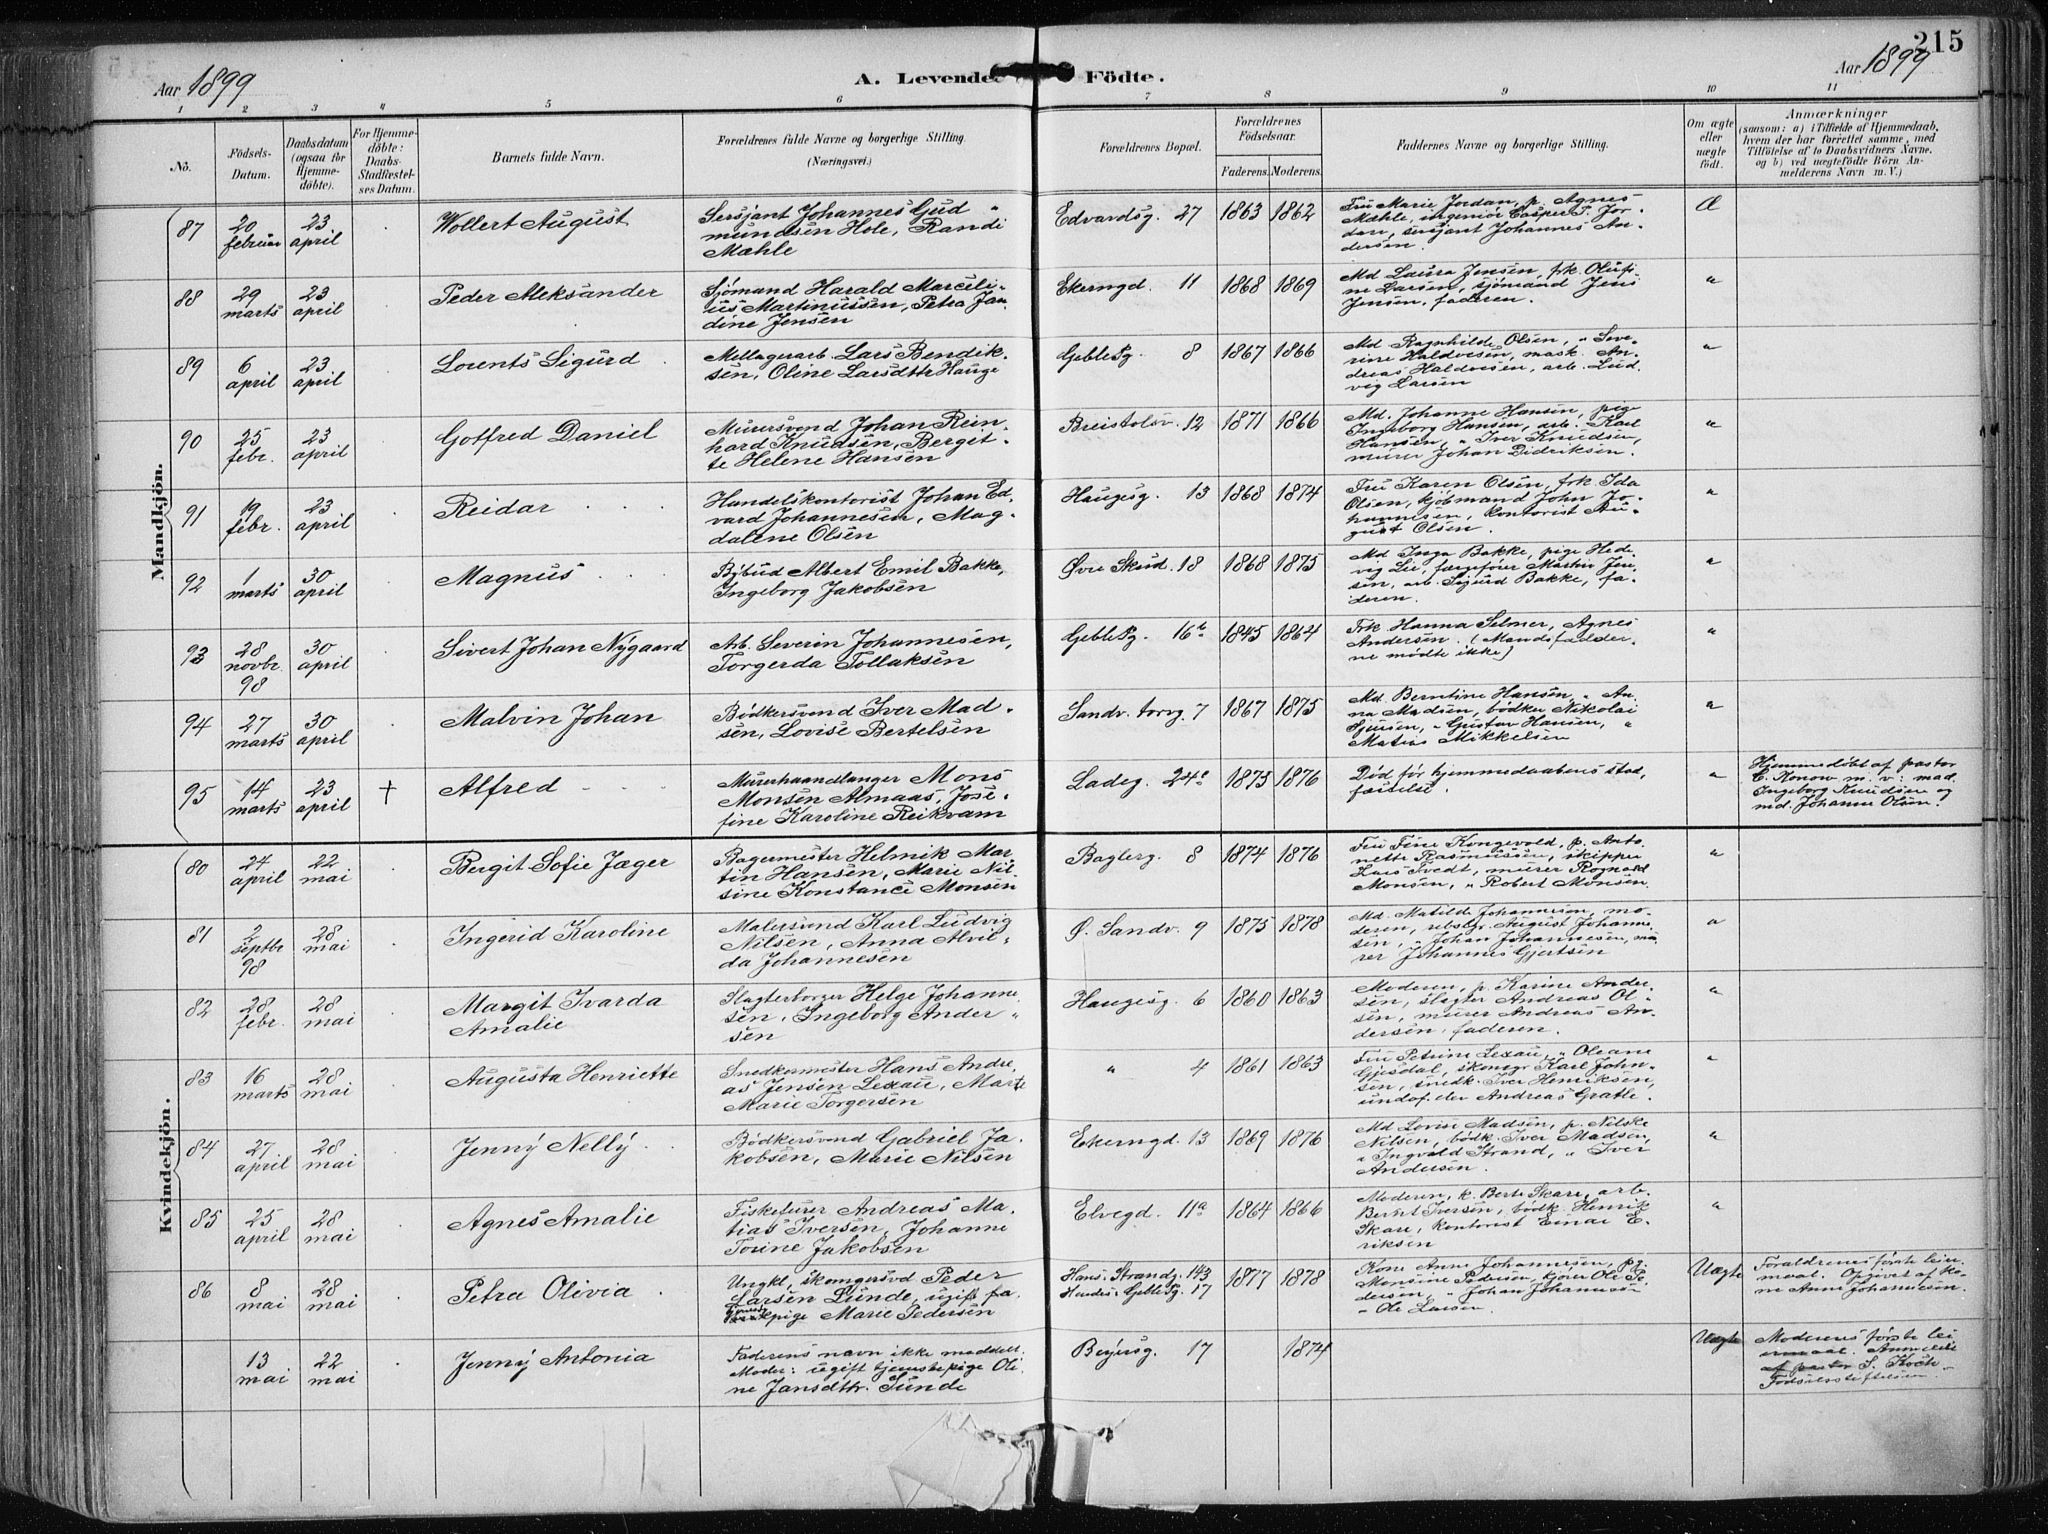 215
Aar 1899
A. Levende Födte.
Aar 1899
1 2 3 4 5 6 7 8 9 10 11
No.
Födsels-Datum.
Daabsdatum (ogsaa för Hjemme-döbte).
For Hjemme-döbte: Daabs-Stadfæstel-ses Datum.
Barnets fulde Navn.
Forældrenes fulde Navne og borgerlige Stilling.
(Næringsvei.)
Forældrenes Bopæl.
Forældrenes Födselsaar.
Faderens. Moderens.
Faddernes Navne og borgerlige Stilling.
Om ægte eller uægte födt.
Anmærkninger
(saasom: a) i Tilfælde af Hjemmedaab, hvem der har forrettet samme, med Tilföielse af to Daabsvidners Navne. og b) ved uægtefödte Börn An-melderens Navn m. V.)
Mandkjön.
87 20 februar 23 april Wollert August
Sersjant Johannes Gud-
mundsen Hole, Randi
Mæhle
Edvardsg. 27 1863 1862
Fru Marie Jordan, p. Agnes
Mæhle, ingeniør Casper S. Jor-
dan, sersjant Johannes An-
dersen.
Æ
88 29 marts 23 april Peder Aleksander
Sjømand Harald Marceli-
us Martinussen, Petra Jan
dine Jensen
Ekerngd. 11 1868 1869
Md Laura Jensen, frk. Olufi
ne Larsen, sjömand Jens
Jensen, faderen.
"
89 6 april 23 april Lorents Sigurd
Mellagerarb Lars Bendik-
sen, Oline Larsdtr Hauge
Geble Pg. 8 1867 1866
Md Ragnhilde Olsen, " Seve-
rine Haldvesen, mask. An-
dreas Haldvesen, arb. Lud-
vig Larsen
"
90 25 febr. 23 april Gotfred Daniel
Murersvend Johan Rein
hard Knudsen, Bergit-
te Helene Hansen
Breistølsv. 12 1871 1866
Md. Johanne Hansen, pige
Ingeborg Hansen, arb. Karl
Hansen, " Iver Knudsen,
murer Johan Didriksen.
"
91 19 febr. 23 april Reidar
Handelskontorist Johan Ed,
vard Johannesen, Mag-
dalene Olsen
Haugesg. 13 1868 1874
Fru Karen Olsen, frk. Ida
Olsen, kjøbmand John Jo-
hannesen, kontorist Au-
gust Olsen.
"
92 1 marts 30 april Magnus
Bybud Albert Emil Bakke,
Ingeborg Jakobsen
Øvre Skud. 18 1868 1875
Md Inga Bakke, pige Hed-
vig Lie, færgefører Martin Jen
sen, arb. Sigurd Bakke, fa-
deren.
"
93 28 novbr. 98 30 april Sivert Johan Nygaard
Arb. Severin Johannesen,
Torgerda Tollaksen
Geble Pg. 16b 1845 1864
Frk Hanna Selmer, Agnes
Andersen. (Mandsfadder-
ne mødte ikke)
"
94 27 marts 30 april Malvin Johan
Bødkersvend Iver Mad-
sen, Lovise Bertelsen
Sandv. torvg. 7 1867 1875
Md. Berntine Hansen, " An-
na Madsen, bødker Nikolai
Sjursen, " Gustav Hansen, "
Matias Mikkelsen
"
95 14 marts 23 april † Alfred
Murerhaandlanger Mons
Monsen Almaas, Jose-
fine Karoline Reikvam
Ladeg. 24a 1875 1876
Død før hjemmedaabens stad,
fæstelse.
"
Hjemmedöbt af pastor
C. Konow m. v: mad.
Ingeborg Knudsen og
md. Johanne Olsen.
Kvindekjön.
80 24 april 22 mai Bergit Sofie Jæger
Bagermester Helmik Mar
tin Hansen, Marie Nil-
sine Konstance Monsen
Baglerg. 8 1874 1876
Fru Fine Kongevold, p. Anto-
nette Rasmussen, skipper
Lars Tvedt, murer Rognald
Monsen, " Robert Monsen.
"
81 2 septbr 98 28 mai Ingerid Karoline
Malersvend Karl Ludvig
Nilsen, Anna Alvil-
da Johannesen
Ø. Sandv. 9 1875 1878
Md. Matilde Johannesen, mo-
deren, rebslgr. August Johanne
sen, " Johan Johannesen, mu
rer Johannes Gjertsen
"
82 28 febr. 28 mai Margit Ivarda
Amalie
Slagterborger Helge Johanne
sen, Ingeborg Ander-
sen
Haugesg. 6 1860 1863
Moderen, p. Karine Ander-
sen, slagter Andreas Ol-
sen, murer Andreas An-
dersen, faderen.
"
83 16 marts 28 mai Augusta Henriette
Snedkermester Hans Andre,
as Jensen Lexau, Marte
Marie Torgersen
" 4 1861 1863
Fru Petrine Lexau, " Oleane
Gjesdal, skomgr Karl John-
sen, snedk. Iver Henriksen,
undof. der Andreas Gratle.
"
84 27 april 28 mai Jenny Nelly
Bødkersvend Gabriel Ja-
kobsen, Marie Nilsen
Ekerngd. 13 1869 1876
Md Lovise Madsen, p. Nilske
Nilsen, bødk. Iver Madsen,
" Ingvald Strand, " Iver
Andersen.
"
85 25 april 28 mai Agnes Amalie
Fiskefører Andreas Ma-
tias Iversen, Johanne
Torine Jakobsen
Elvegd. 11a 1864 1866
Moderen, k. Berte Skare, arb.
Bernt Iversen, bødk. Henrik
Skare, kontorist Einar E-
riksen
"
86 8 mai 28 mai Petra Olivia
Ungkl, skomgersvd Peder
Larsen Lunde, ugift fa.
brikpige Marie Pedersen
Hans: Strandg. 143
Hendes: Geble Pg. 17
1877 1878
Kone Anne Johannesen, p.
Monsine Pedersen, kjører Ole Pe
dersen, " Johan Johannesen
" Ole Larsen.
Uægte
Forældrenes første leier
maal. Opgivet af ko-
ne Anne Johannesen.
13 mai 22 mai Jenny Antonia
Faderens navn ikke meddelt.
Moder: ugift tjenestepige Oli
ne Jansdtr. Sunde
Beyersg. 17 1874
Uægte
Moderens første lei
ermaal. Anmeldt
af pastor S. Koch
Fødselsstiftelsen.